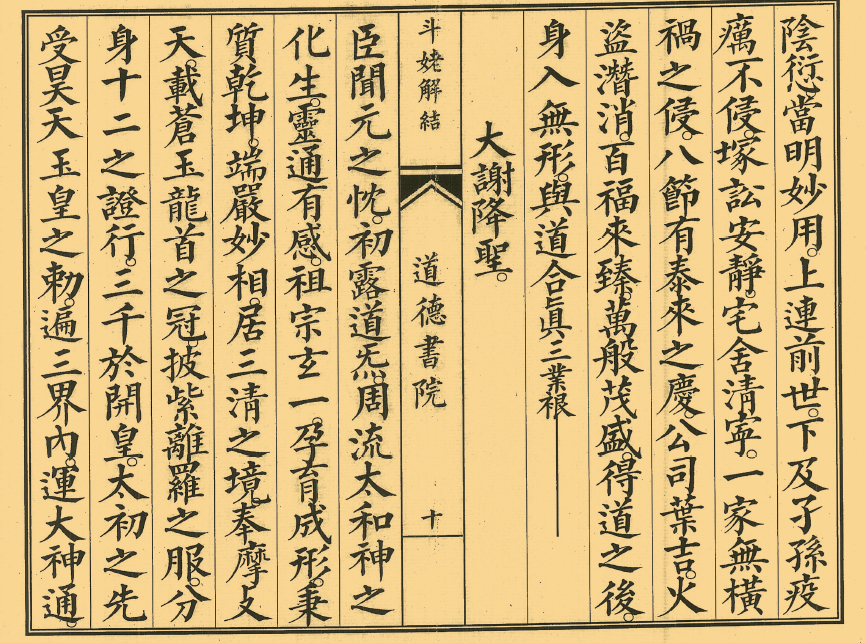 陰愆。當明妙用。上連前世。下及子孫疫
癘不侵。塚訟安靜。宅舍清寧。一家無橫
禍之侵。八節有泰來之慶公司葉吉。火
盜潛消。百福來臻。萬般茂盛。得道之後。
身入無形。與道合眞三業根
大謝降聖。
斗姥解結
道德書院
十
臣聞元之忱。初露道炁。周流太和神之
化生。靈通有感。祖宗玄一。孕育成形。秉
質乾坤。端嚴妙相。居三清之境。奉摩攴
天。載蒼玉龍首之冠披紫離羅之服。分
身十二之證行。三千於開皇。太初之先
受昊天玉皇之勅。遍三界內。運大神通。